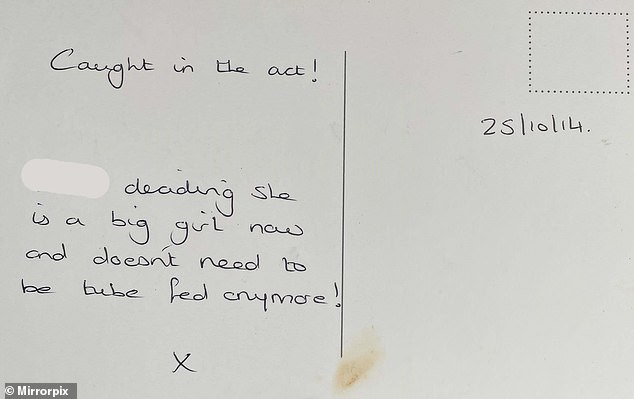 Caught in the act!
25/10/14.
deciding she
is a big girl now
and doesn't need to
be tube fed anymore!
X
© Mirrorpix